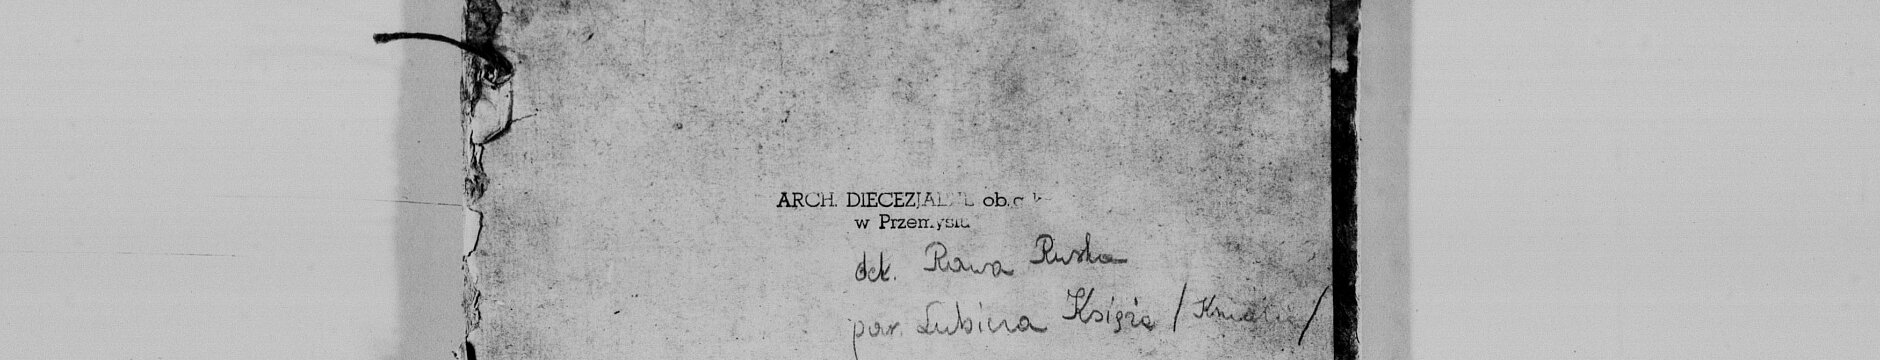 ARCH. DIECEZJALNE ob.
w Przemyślu
dek. Rawa Ruska
par. Lubicza Księża / Kniazie /